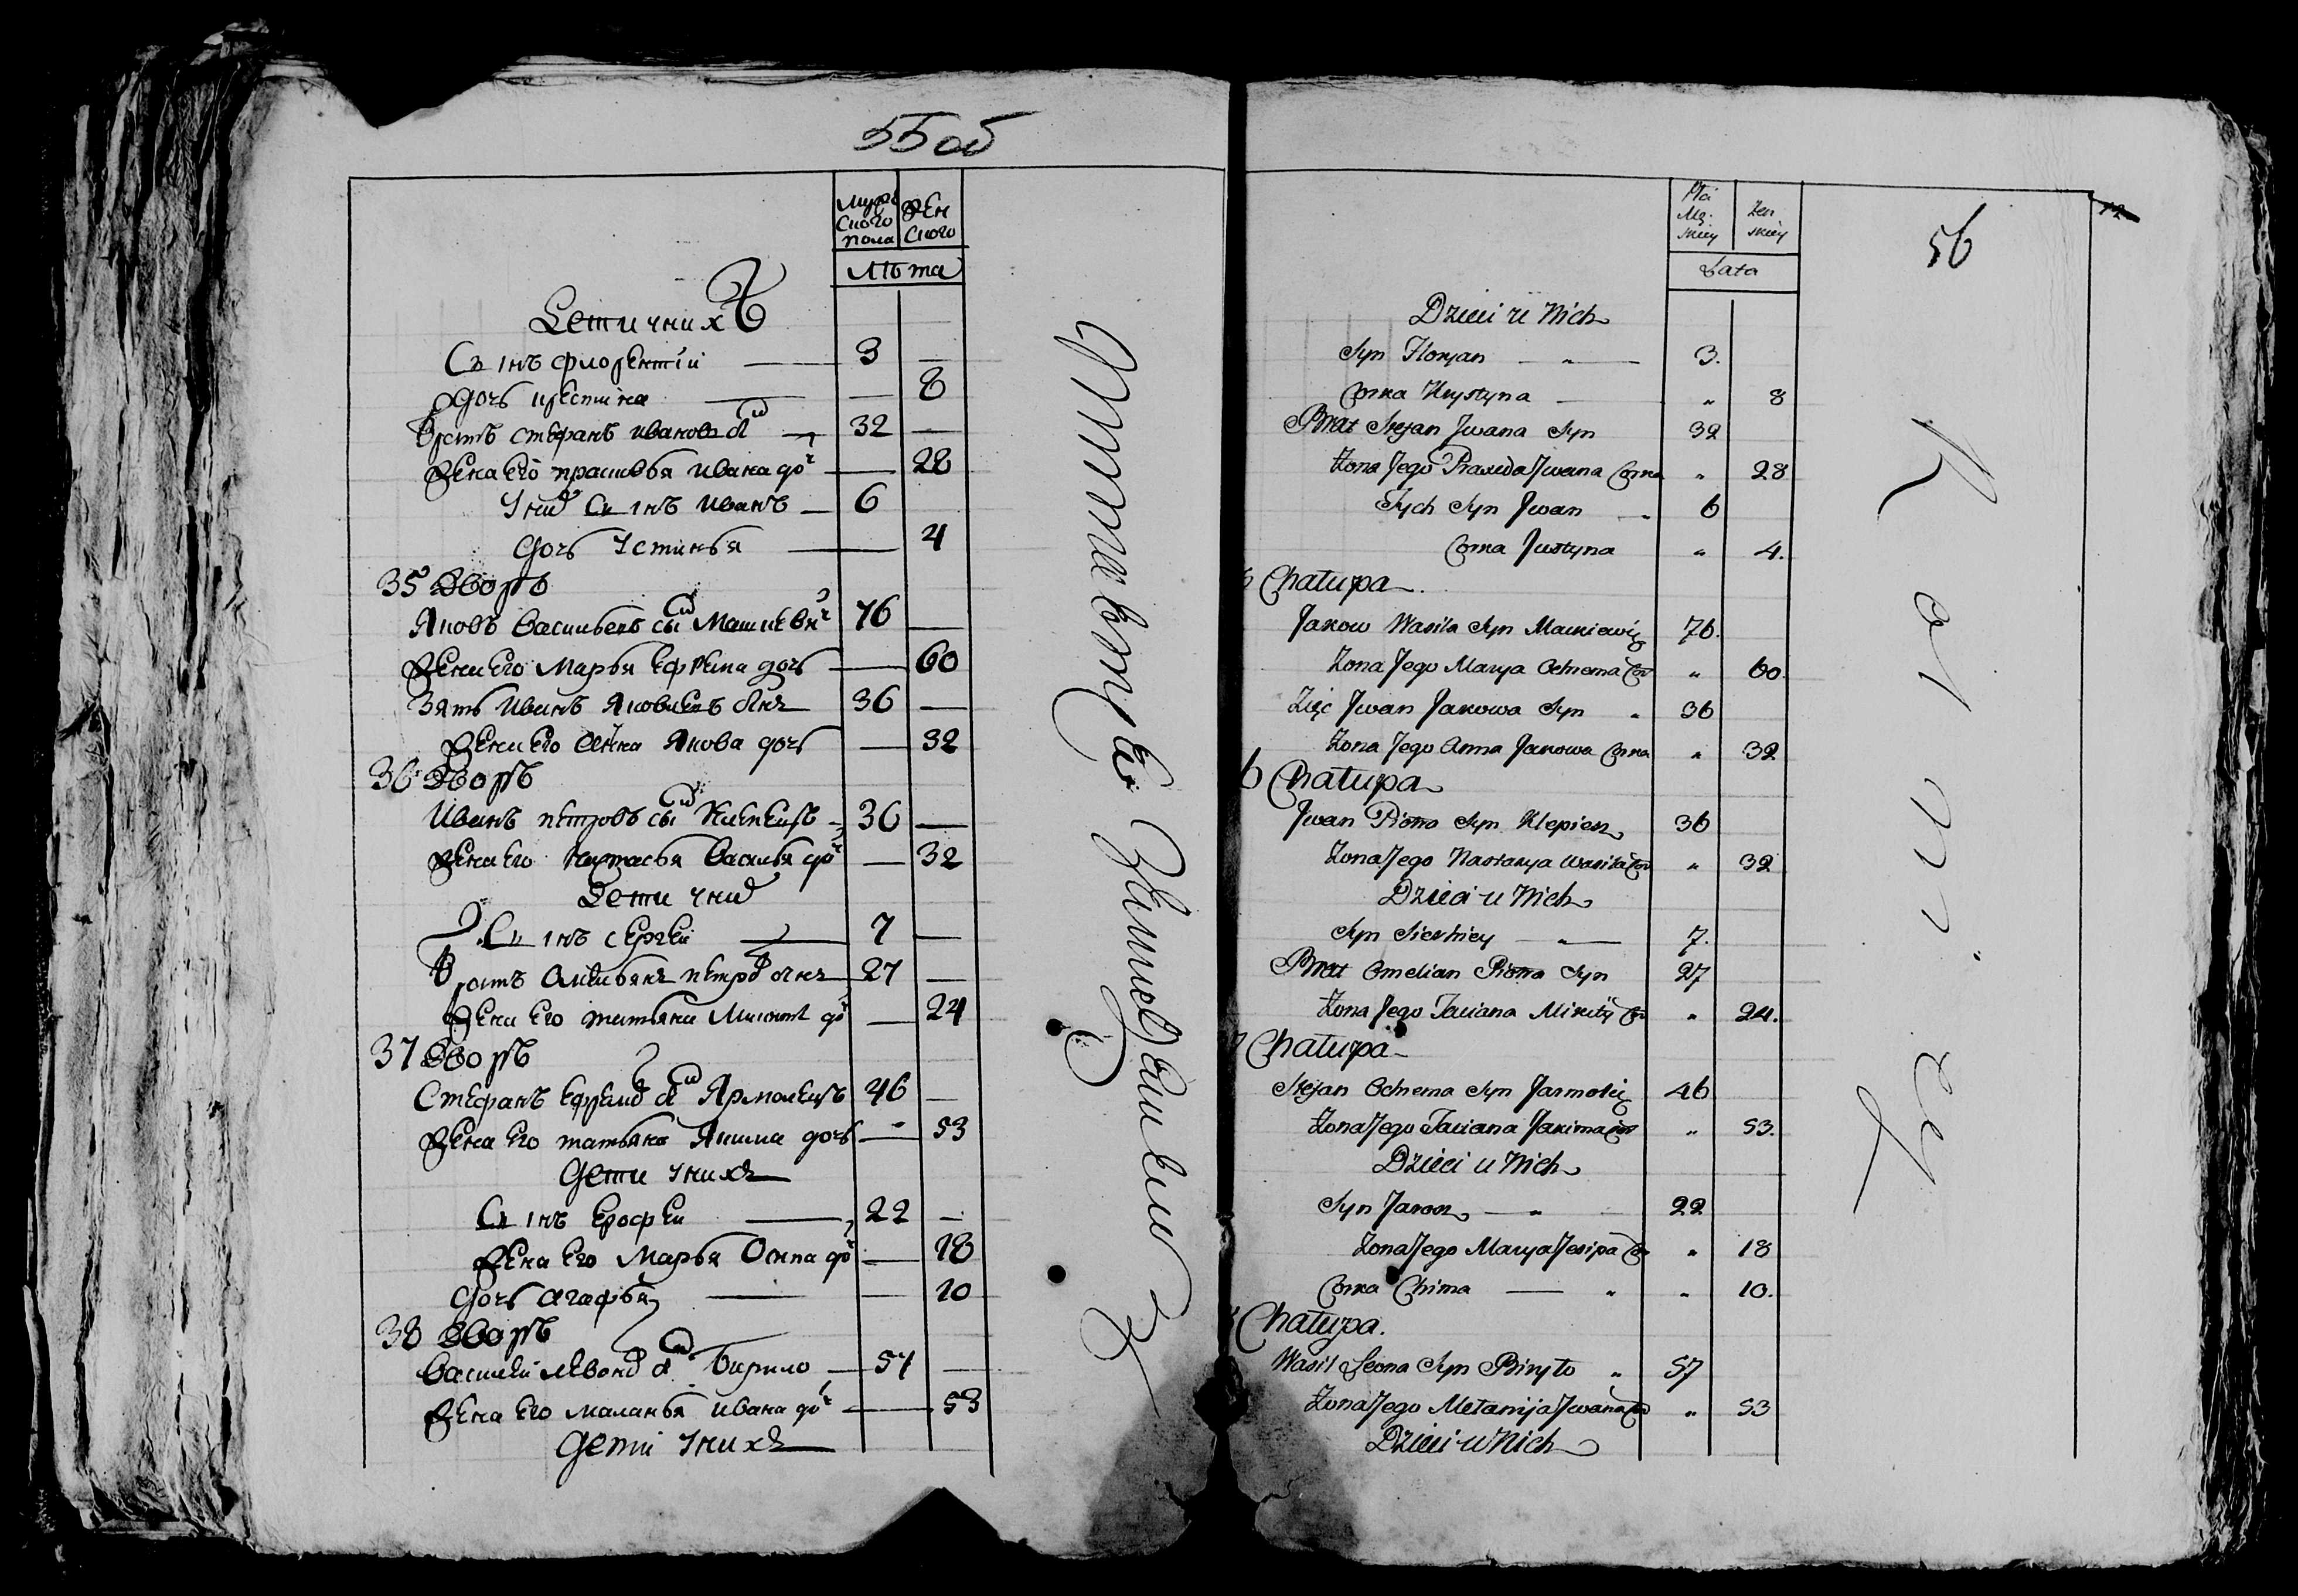 55 об
Мужс
ского
пола
Жен
ского
Лѣта
Дети у них
Синъ Флорентiй — 3 —
Дочь Кристина — — 8
Братъ Стефанъ Иванов сы — 32 —
Жена его Прасковья Ивана до — 28
У них Синъ Иванъ — 6
Дочь Устинья — 4
35 Дворъ
Яковъ Васильевъ сы Мацкевич 76 —
Жена его Марья Ефрема дочь — 60
Зять Иванъ Яковлевъ сынъ 36 —
Жена его Анна Якова дочь — 32
36 Дворъ
Иванъ Петровъ сы Клепецъ — 36 —
Жена его Настасья Василья до — 32
Дети у них
Синъ Сергей — 7 —
Братъ Амельянъ Петров сынъ 27 —
Жена его Татьяна Микиты до — 24
37 Дворъ
Стефанъ Ефремов сы Ярмолецъ 46 —
Жена его Татьяна Якима дочь — 53
Дети у нихъ
Синъ Ерофей — 22 —
Жена его Марья Осипа до — 18
Дочь Агафья — — 10
38 Дворъ
Василий Левонов сы Бирило — 57 —
Жена его Маланья Ивана до — 53
Дети у нихъ
Płci
Mę.
skiey
Żen
skiey
Lata
56
Dzieci u Nich
Syn Floryan — " — 3.
Corka Krystyna — " 8
Brat Stefan Jwana Syn 32
Żona Jego Praxeda Jwana Corka " 28
Tych Syn Jwan 6
Corka Justyna " 4.
Chałupa.
Jakow Wasila Syn Mackiewicz 76.
Żona Jego Marya Ochrema Cor " 60.
Zięć Jwan Jakowa Syn " 36
Żona Jego Anna Jakowa Corka " 32
6 Chałupa
Jwan Piotra Syn Klepiec 36
Żona Jego Nastazya Wasila Cor " 32
Dzieci u Nich
Syn Sierhiey — " — 7.
Brat Omelian Piotra Syn 27
Żona Jego Taciana Mikity Cor " 24.
7 Chałupa
Stefan Ochrema Syn Jarmolic 46
Żona Jego Taciana Jakima Cor " 53.
Dzieci u Nich
Syn Jarosz — " 22
Żona Jego Marya Jesipa Cor " 18
Corka Chima — " " 10.
Chałupa.
Wasil Leona Syn Biryło " 57
Żona Jego Mełanija Jwana Cor " 53
Dzieci u Nich